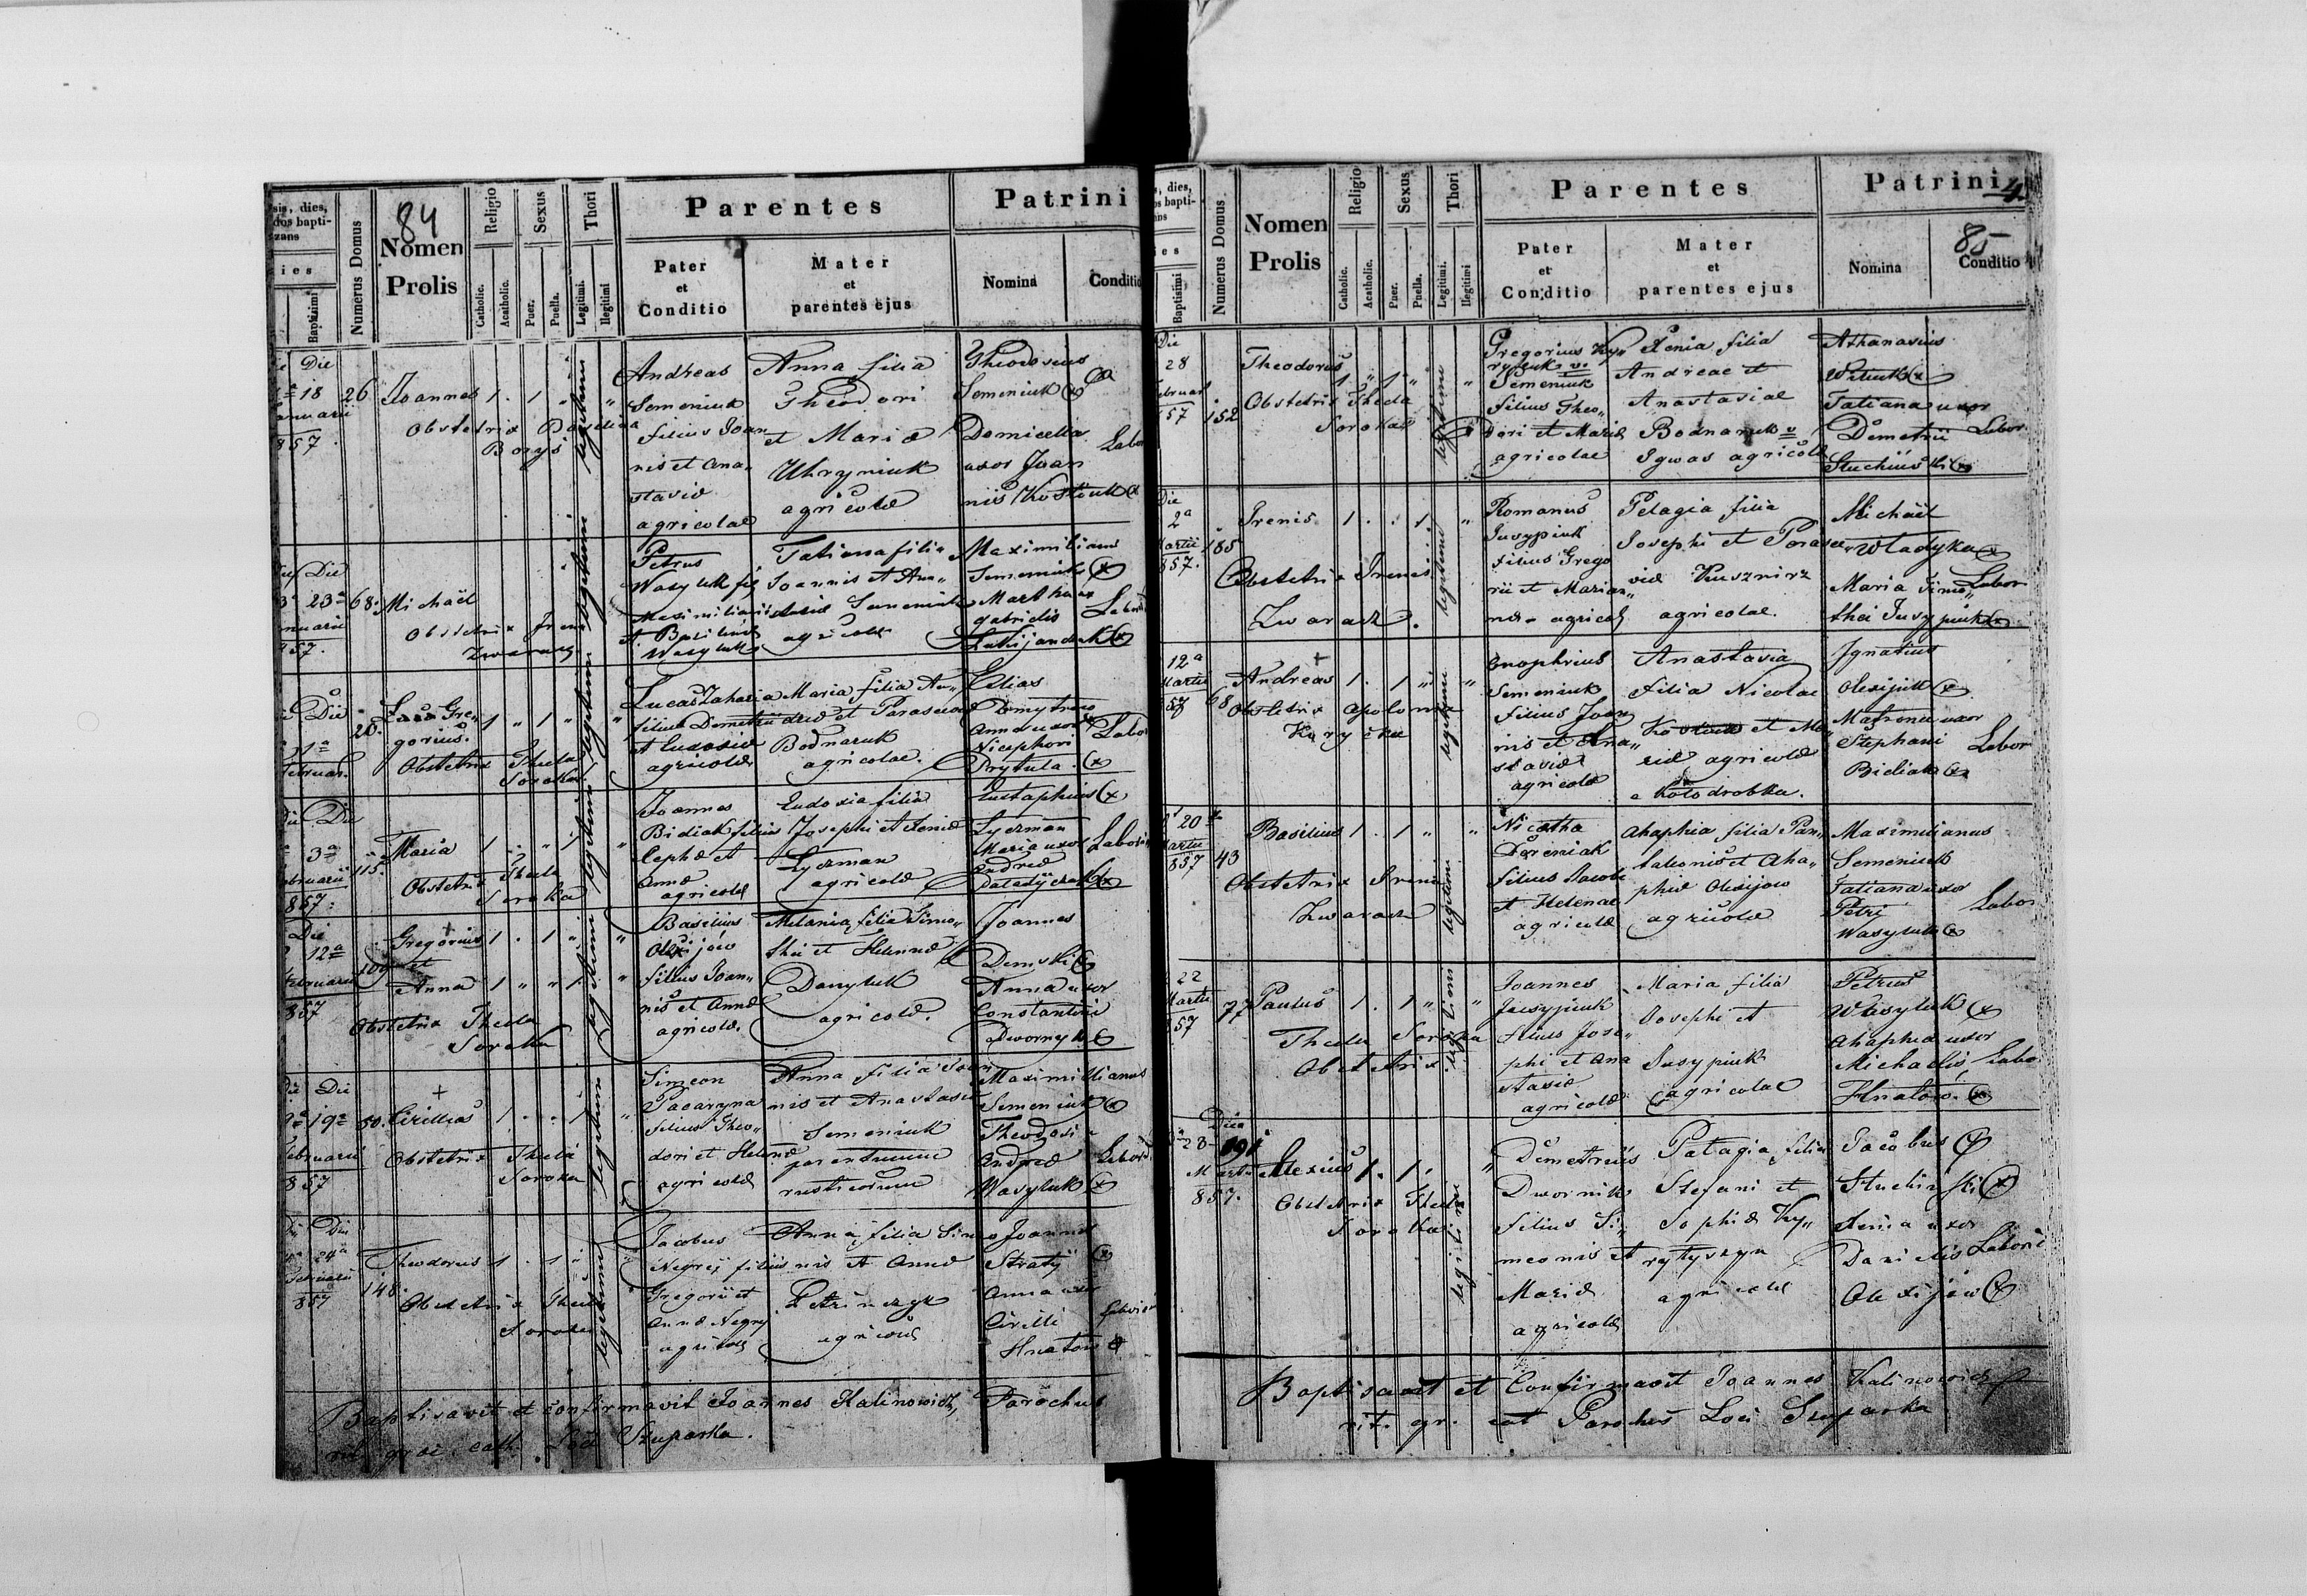 84
sis, dies,
dos bapti-
zans
ies
Baptismi
Numerus Domus
Nomen
Prolis
Religio
Catholic.
Acatholic.
Sexus
Puer.
Puella.
Thori
Legitimi.
Ilegitimi
Parentes
Pater
et
Conditio
Mater
et
parentes ejus
Patrini
Nomina
Conditio
Die
18
Januarii
857.
26
Joannes 1 . 1 "
Obstetrix
Borys
legitimi
Andreas
Semeniuk
filius Joan
nis et Ana„
stasiae
agricolae
Anna filia
Theodori
et Mariae
Uhryniuk
agricolae
Theodosius
Semeniuk
Domicella
uxor Joan
nis Kostiuk
Labor
Die
23a
857.
68.
Michaël
Obstetrix Irena
legitimi
Petrus
Wasyluk fil
Maximiliani
et Basiliae
Wasyluk
Tatiana filia
Joannis et An„
Semeniuk
agricolae
Maximilianus
Semeniuk
Martha
Lukijanchuk
Labor
Die
Februar.
28.
Gre„
gorius. 1 " 1 "
Obstetrix Thecla
Soroka
legitimi
Lucas Zaharia
filius Demetrii
et Eudoxiae
agricolae
Maria filia An„
dreae et Parascevae
Bodnaruk
agricolae.
Elias
Dmytrow
Anna uxor
Nicephori
Prytula.
Labor
Die
3a
Februarii
857.
115.
Maria 1 . " 1 "
Obstetrix Thecla
Soroka
legitimi
Joannes
Bidiak filius
Annae
agricolae
Eudoxia filia
Josephi et Xeniae
Lyczman
agricolae
Eustaphius
Lyczman
Maria uxor
Andreae
Labor
Die
12a
Februarii
857
109
Gregorius 1 . 1 "
et
Anna 1 " " 1.
Obstetrix Thecla
Soroka
legitimi
Basilius
Olexijow
filius Joan„
nis et Annae
agricolae.
Melania filia Timo„
thei et Helenae
Danyluk
agricolae.
Joannes
Demski
Anna uxor
Constantini
Dwornyk
Die
19a
Februarii
857
50.
Cirillus 1 . . 1
Obstetrix Thecla
Soroka
legitimi
Simeon
Pacaryna
filius Theo„
dori et Helenae
agricolae
Anna filia Joan
nis et Anastasiae
Semeniuk
parentum
rusticorum
Maximillianus
Semeniuk
Theodosia
Andreae
Wasyluk
Labor
Die
24a
Februarii
857
148.
Theodorus 1 . 1 "
Obstetrix Thecla
Soroka
legitimi
Jacobus
Negrij filius
Gregorii et
Annae Negry
agricolae
Anna filia Simeo
nis et Annae
agricolae
Joannes
Stratij
Anna uxor
Cirilli
Hnatow
Baptisavit et confirmavit Joannes Kalinowicz, Parochus
rit. graei. cath. Loci Szuparka.
4.
85
s, dies,
os bapti-
ans
ies
Baptismi
Numerus Domus
Nomen
Prolis
Religio
Catholic.
Acatholic.
Sexus
Puer.
Puella.
Thori
Legitimi.
Ilegitimi
Parentes
Pater
et
Conditio
Mater
et
parentes ejus
Patrini
Nomina
Conditio
Die
28
Februar
57
152
Theodorus 1 " 1 "
Obstetrix Thecla
Soroka
legitimi
Gregorius Ky„
Semeniuk
filius Theo„
dori et Mariae
agricolae
Xenia filia
Andreae et
Anastasiae
Bodnaruk v
Igwas agricolae
Athanasius
Witiuk
Tatiana uxor
Demetrii
Labor
Die
2a
Martii
857.
185
Irenis 1 . . 1.
Obstetrix Irenis
Zwarack.
legitimi
Romanus
Jusypiuk
filius Grego
rii et Marian„
nae agricolae
Pelagia filia
Josephi et Parasce„
viae Kusznirz
agricolae.
Michaël
Wladyka
Maria Timo„
thei Jusypiuk
Labor
12a
Martii
57
68
Andreas 1 . 1 "
Obstetrix Apolonia
legitimi
Onophrius
Semeniuk
filius Joan
nis et Ana„
stasiae
agricolae
Anastasia
filia Nicolai
Kostiuk et Ma„
riae agricolae
e Kolodrobka.
Ignatius
Olexijuk
Matrona uxor
Stephani
Bidiak
Labor
20
Martii
857
43
Basilius 1 . 1 "
Obstetrix Irenis
Zwarack
legitimi
Nicetha
Doreniak
filius Jacobi
et Helenae
agricolae
Ahaphia filia Pan„
taleonis et Aha„
phiae Olexijow
agricolae
Maximilianus
Semeniuk
Tatiana uxor
Petri
Wasyluk
Labor
22
Martii
57
77
Paulus 1 . 1 "
Thecla Soroka
Obstetrix
legitimi
Joannes
Jusypiuk
filius Jose„
phi et Ana
stasiae
agricolae
Maria filia
Josephi et
Jusypiuk
agricolae
Petrus
Wasyluk
Ahaphia uxor
Michaelis
Hnatow.
Labor
Die
28
Martii
857.
191
Alexius 1. 1.
Obstetrix Thecla
Soroka
legitimi
Demetrius
Dwornik
filius Si„
meonis et
Mariae
agricolae
Palagia filia
Stefani et
Sophiae Ky„
rytyszyn
agricolae
Jacobus
Stuchinski
Xenia uxor
Danielis
Olexijow
Labori
Baptisavit et Confirmavit Joannes Kalinowicz
rit. gr. cat Parochus Loci Szuparka